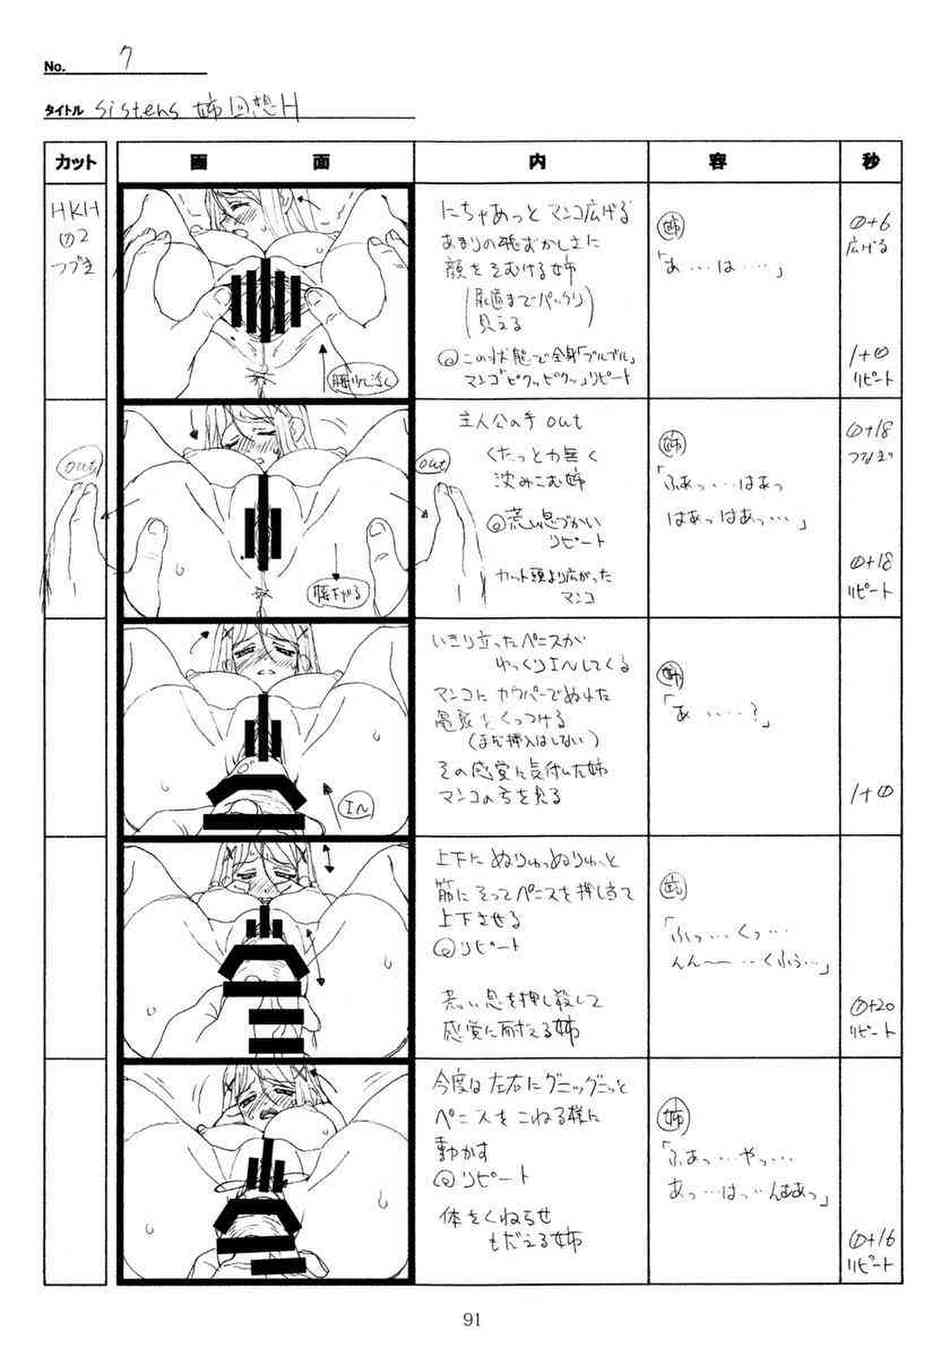 No. 7
タイトル sisters 姉回想H
カット 画 面 内 容 秒
HKH
の2
つづき
腰少し浮く
にちゃあっと マンコ広げる
あまりの恥ずかしさに
顔をそむける姉
(尿道までパックリ
見える)
この状態で全身「プルプル」
マンコ「ピクッピクッ」リピート
姉
「あ…は……」
0+6
広げる
1+0
リピート
out
腰下がる
out
主人公の手 out
くたっと力無く
沈みこむ姉
荒い息づかい
リピート
カット頭より広がった
マンコ
姉
「ふあっ……はあっ
はあっはあっ…」
0+18
つなぎ
0+18
リピート
IN
いきり立ったペニスが
ゆっくりINしてくる
マンコに カウパーでぬれた
亀頭をくっつける
(まだ挿入はしない)
その感覚に気付いた姉
マンコの方を見る
姉
「あ……?」
1+0
上下に ぬりゅっぬりゅっと
筋にそってペニスを押し当て
上下させる
リピート
荒い息を押し殺して
感覚に耐える姉
姉
「ふっ…くっ…
んん〜…くふぅ…」
0+20
リピート
今度は左右にグニッグニッと
ペニスをこねる様に
動かす
リピート
体をくねらせ
もだえる姉
姉
「ふあっ…やっ…
あっ…はっ…んああっ」
0+16
リピート
91